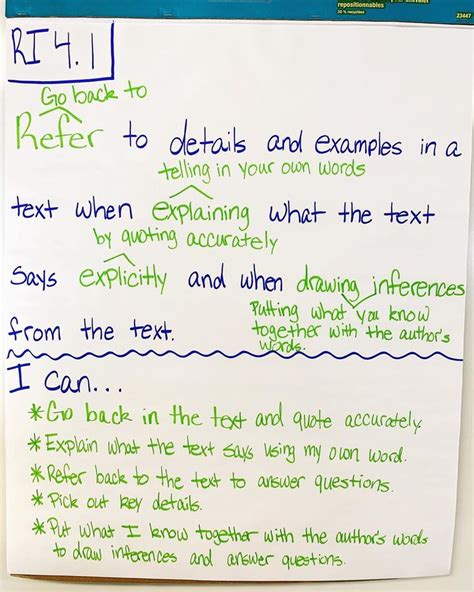 repositionnables
30 % recyclées
23447
RI 4.1
Go back to
Refer to details and examples in a
telling in your own words
text when explaining what the text
by quoting accurately
says explicitly and when drawing inferences
Putting what you know
together with the author's
words.
from the text.
I can...
*Go back in the text and quote accurately
*Explain what the text says using my own word.
*Refer back to the text to answer questions.
*Pick out key details.
*Put what I know together with the author's words
to draw inferences and answer questions.